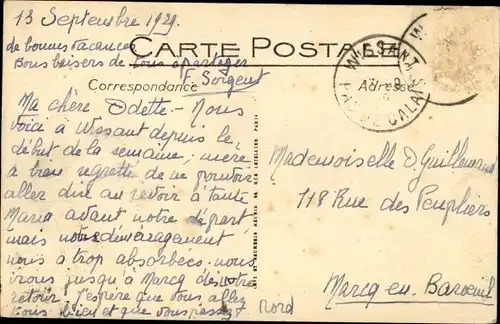 13 Septembre 1929.
de bonnes vacances
Bons baisers de tous à partager
F. Sorgent
CARTE POSTALE
Correspondance
Adresse
WISSANT
PAS DE CALAIS
Ma chère Odette - Nous
voici à Wissant depuis le
début de la semaine, mère
a bien regretté de ne pouvoir
aller dire au revoir à tante
Maria avant notre départ
mais notre déménagement
nous a trop absorbées - nous
irons jusqu'à Marcq dès notre
retour. J'espère que vous allez
tous bien et que vous passez
Mademoiselle O. Guillemaud
118 Rue des Peupliers
Marcq-en-Baroeul
Nord